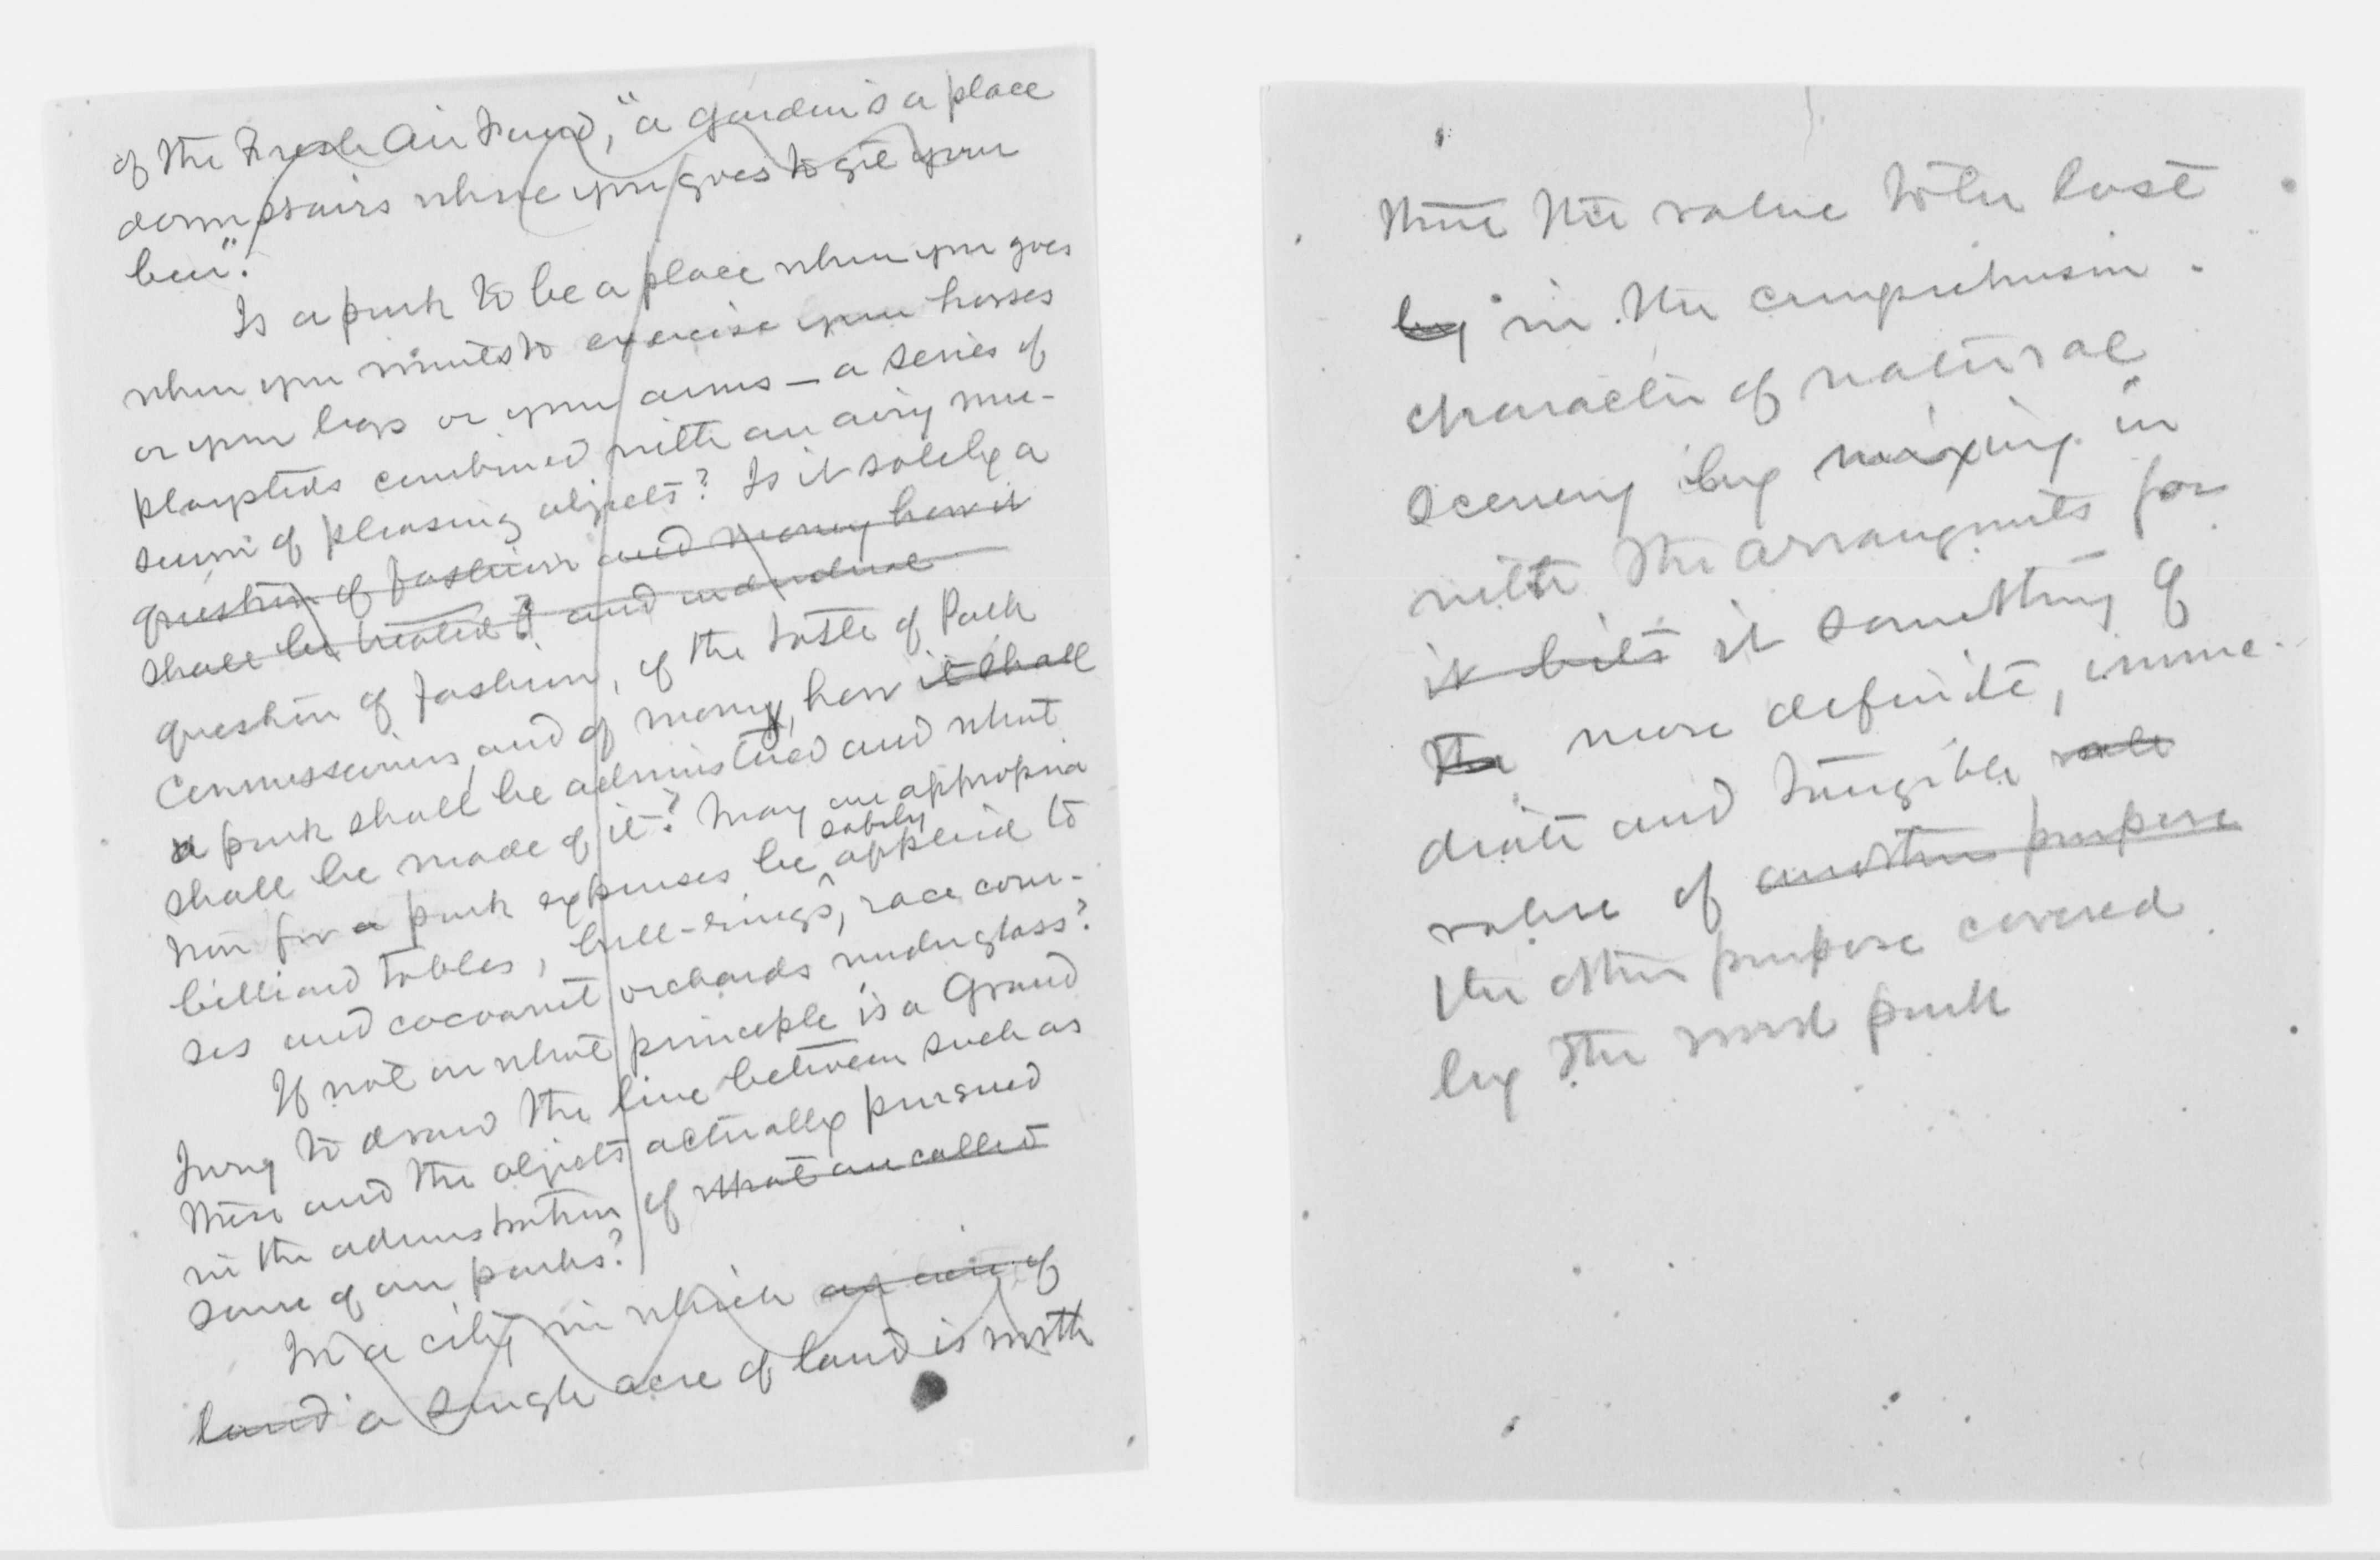 of the Fresh Air Fund, "a garden's a place
down stairs where you goes to git your
beer".
Is a park to be a place where you goes
when you wants to exercise your horses
or your legs or your arms — a series of
playsteds combined with an airy mu-
seum of pleasing objects? Is it solely a
question of fashion and money how it
shall be treated? and individual
question of fashion, of the taste of Park
Commissioners, and of money, how it shall
a park shall be administered and what
shall be made of it? May an appropria
tion for a park expenses be safely applied to
billiard tables, bull-rings, race cour-
ses and cocoanut orchards under glass?
If not on what principle is a Grand
Jury to draw the line between such as
these and the objects actually pursued
in the administration of what are called
some of our parks?
In a city in which an acre of
land a single acre of land is worth
than the value to be lost
by in the comprehension
character of natural
scenery by mixing in
with the arrangments for
it bits it something of
the more definite, imme-
diate and tangible
value of another purpose
the other purpose covered
by the word park